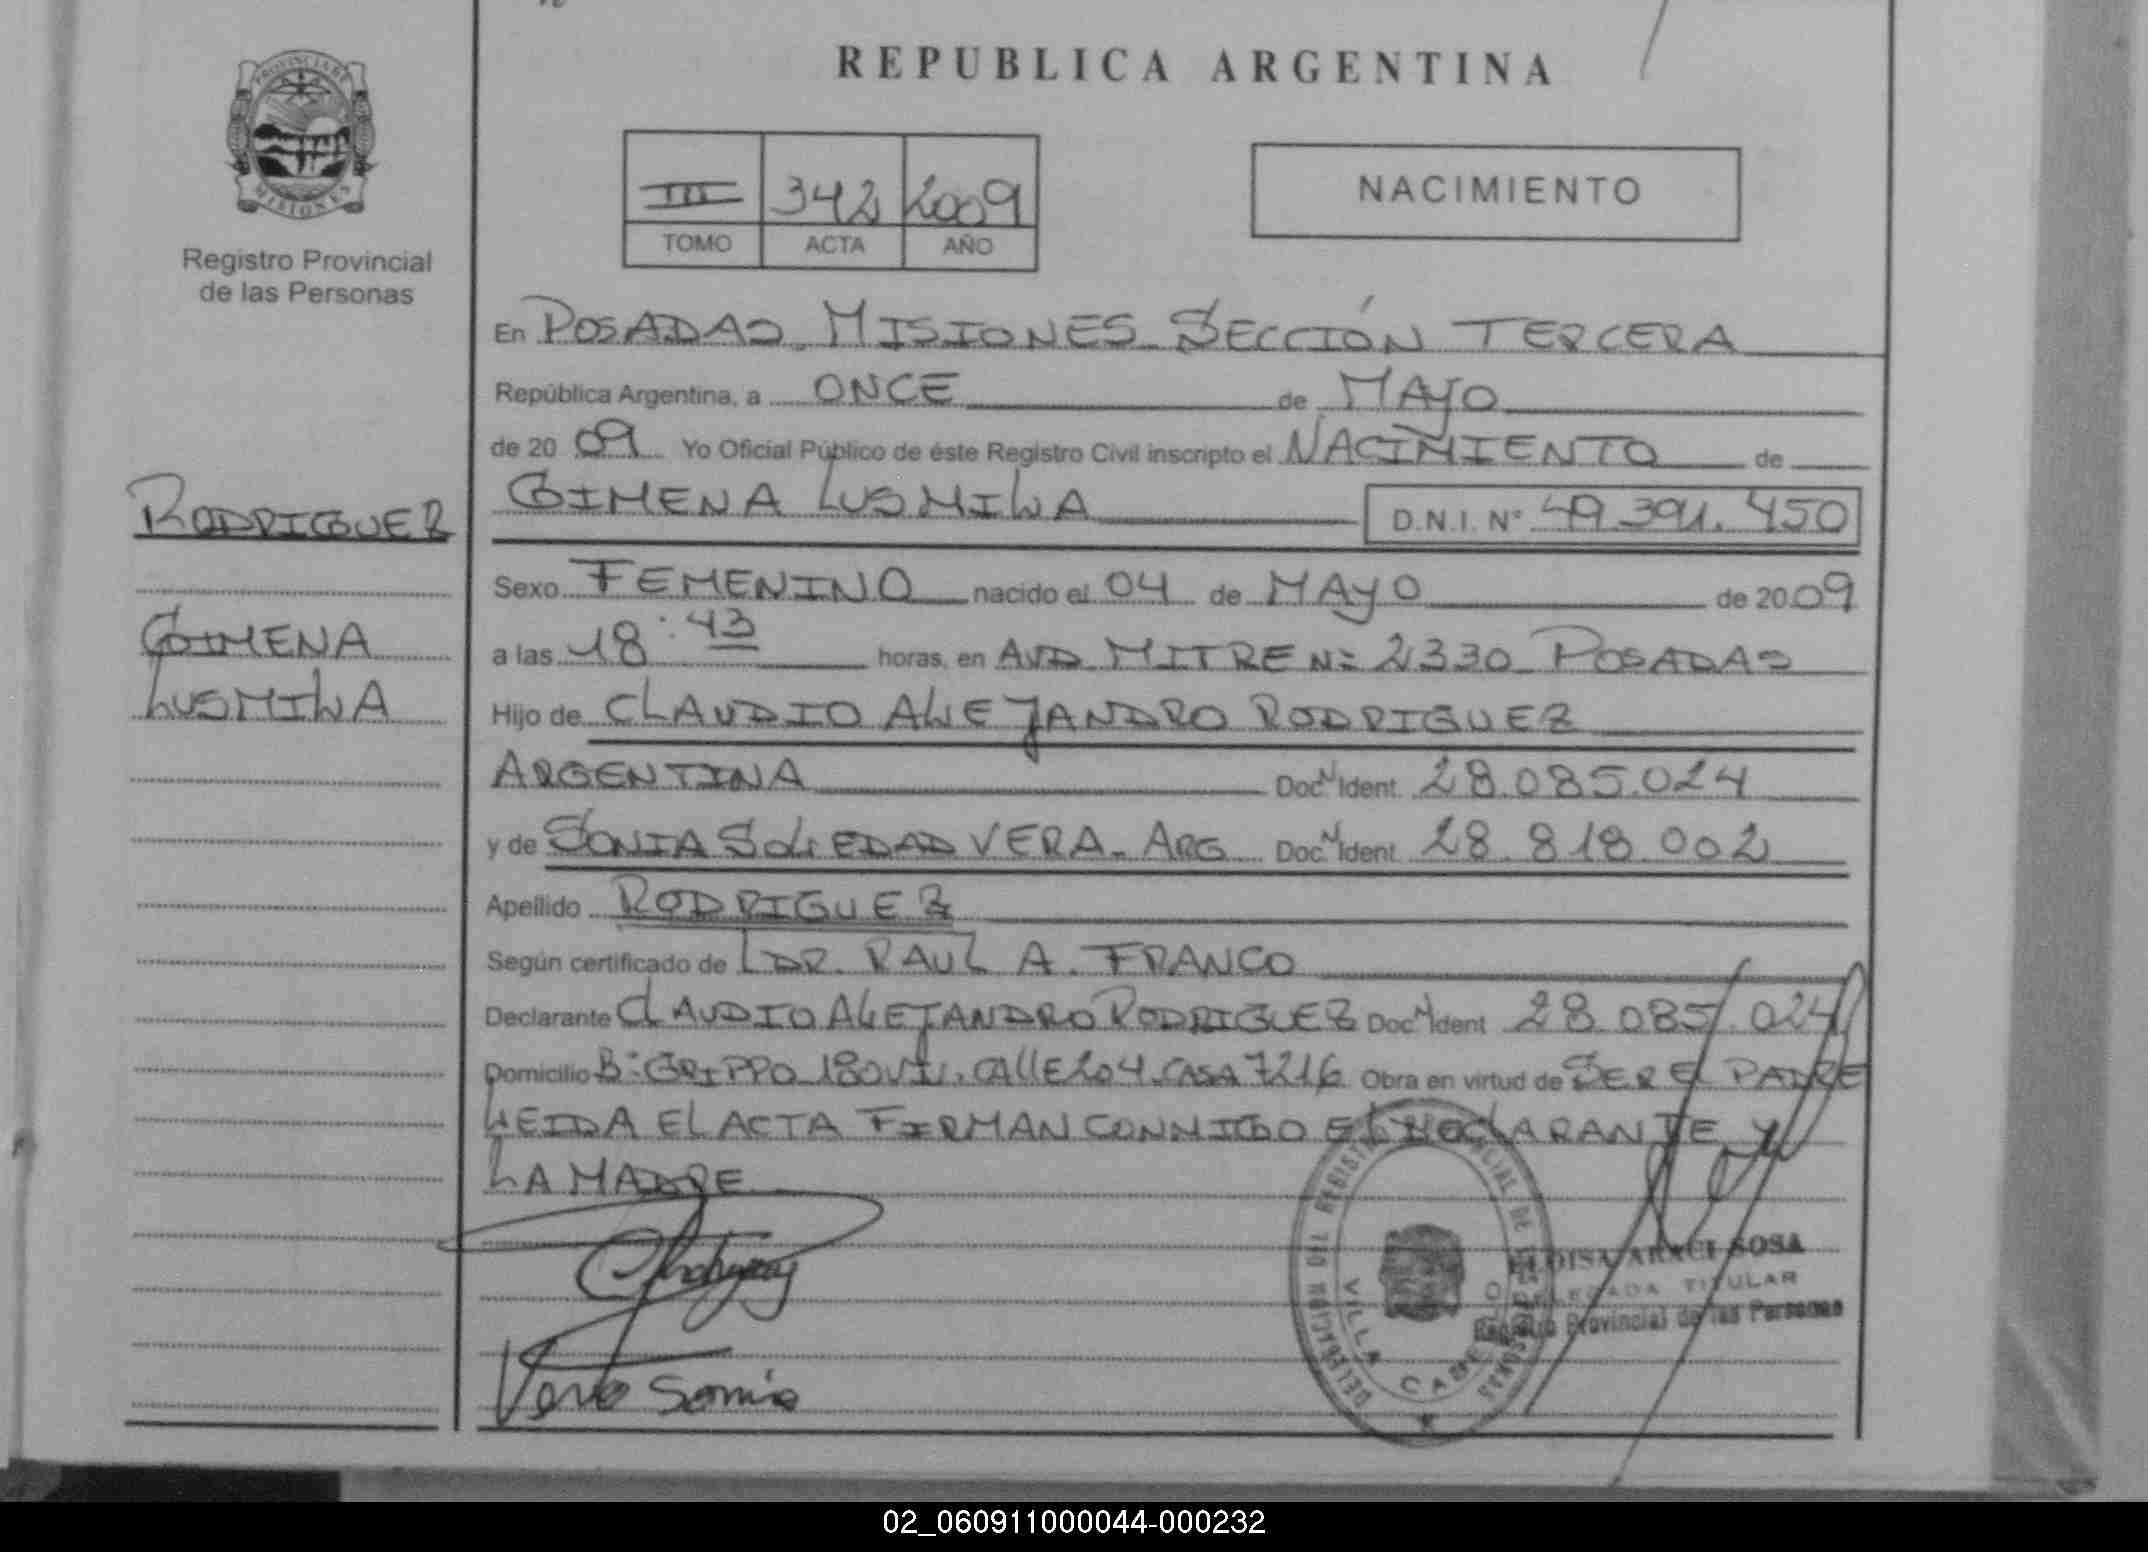 PROVINCIA DE
MISIONES
Registro Provincial
de las Personas
RODRIGUEZ
GIMENA
LUSMILA
REPUBLICA ARGENTINA
III 342 2009
TOMO ACTA AÑO
NACIMIENTO
En POSADAS. MISIONES. SECCIÓN TERCERA
República Argentina, a ONCE de MAYO
de 2009 Yo Oficial Público de éste Registro Civil inscripto el NACIMIENTO de
GIMENA LUSMILA D.N.I. Nº 49.391.450
Sexo FEMENINO nacido el 04 de MAYO de 2009
a las 18:43 horas, en AVD MITRE Nº 2330 POSADAS
Hijo de CLAUDIO ALEJANDRO RODRIGUEZ
ARGENTINA Doc. N Ident. 28.085.024
y de SONIA SOLEDAD VERA. ARG. Doc. N Ident. 28.818.002
Apellido RODRIGUEZ
Según certificado de DR. RAUL A. FRANCO
Declarante CLAUDIO ALEJANDRO RODRIGUEZ Doc. N Ident. 28.085.024
Domicilio Bº GRIPPO 180 VI. CALLE 204 CASA 7216 Obra en virtud de SER EL PADRE
LEIDA EL ACTA FIRMAN CONMIGO EL DECLARANTE Y
LA MADRE
Vera Sonia
DELEGACION DEL REGISTRO PROVINCIAL DE LAS PERSONAS
VILLA CABELLO
ELOISA ARACI SOSA
DELEGADA TITULAR
Registro Provincial de las Personas
02_060911000044-000232